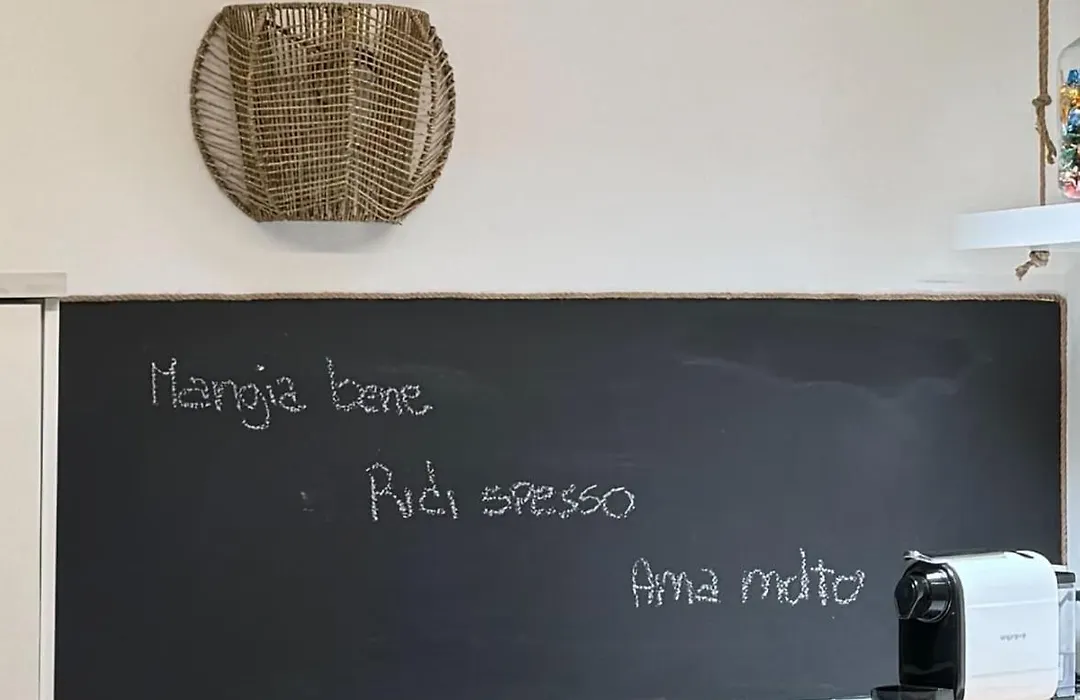 Mangia bene
Ridi spesso
Ama molto